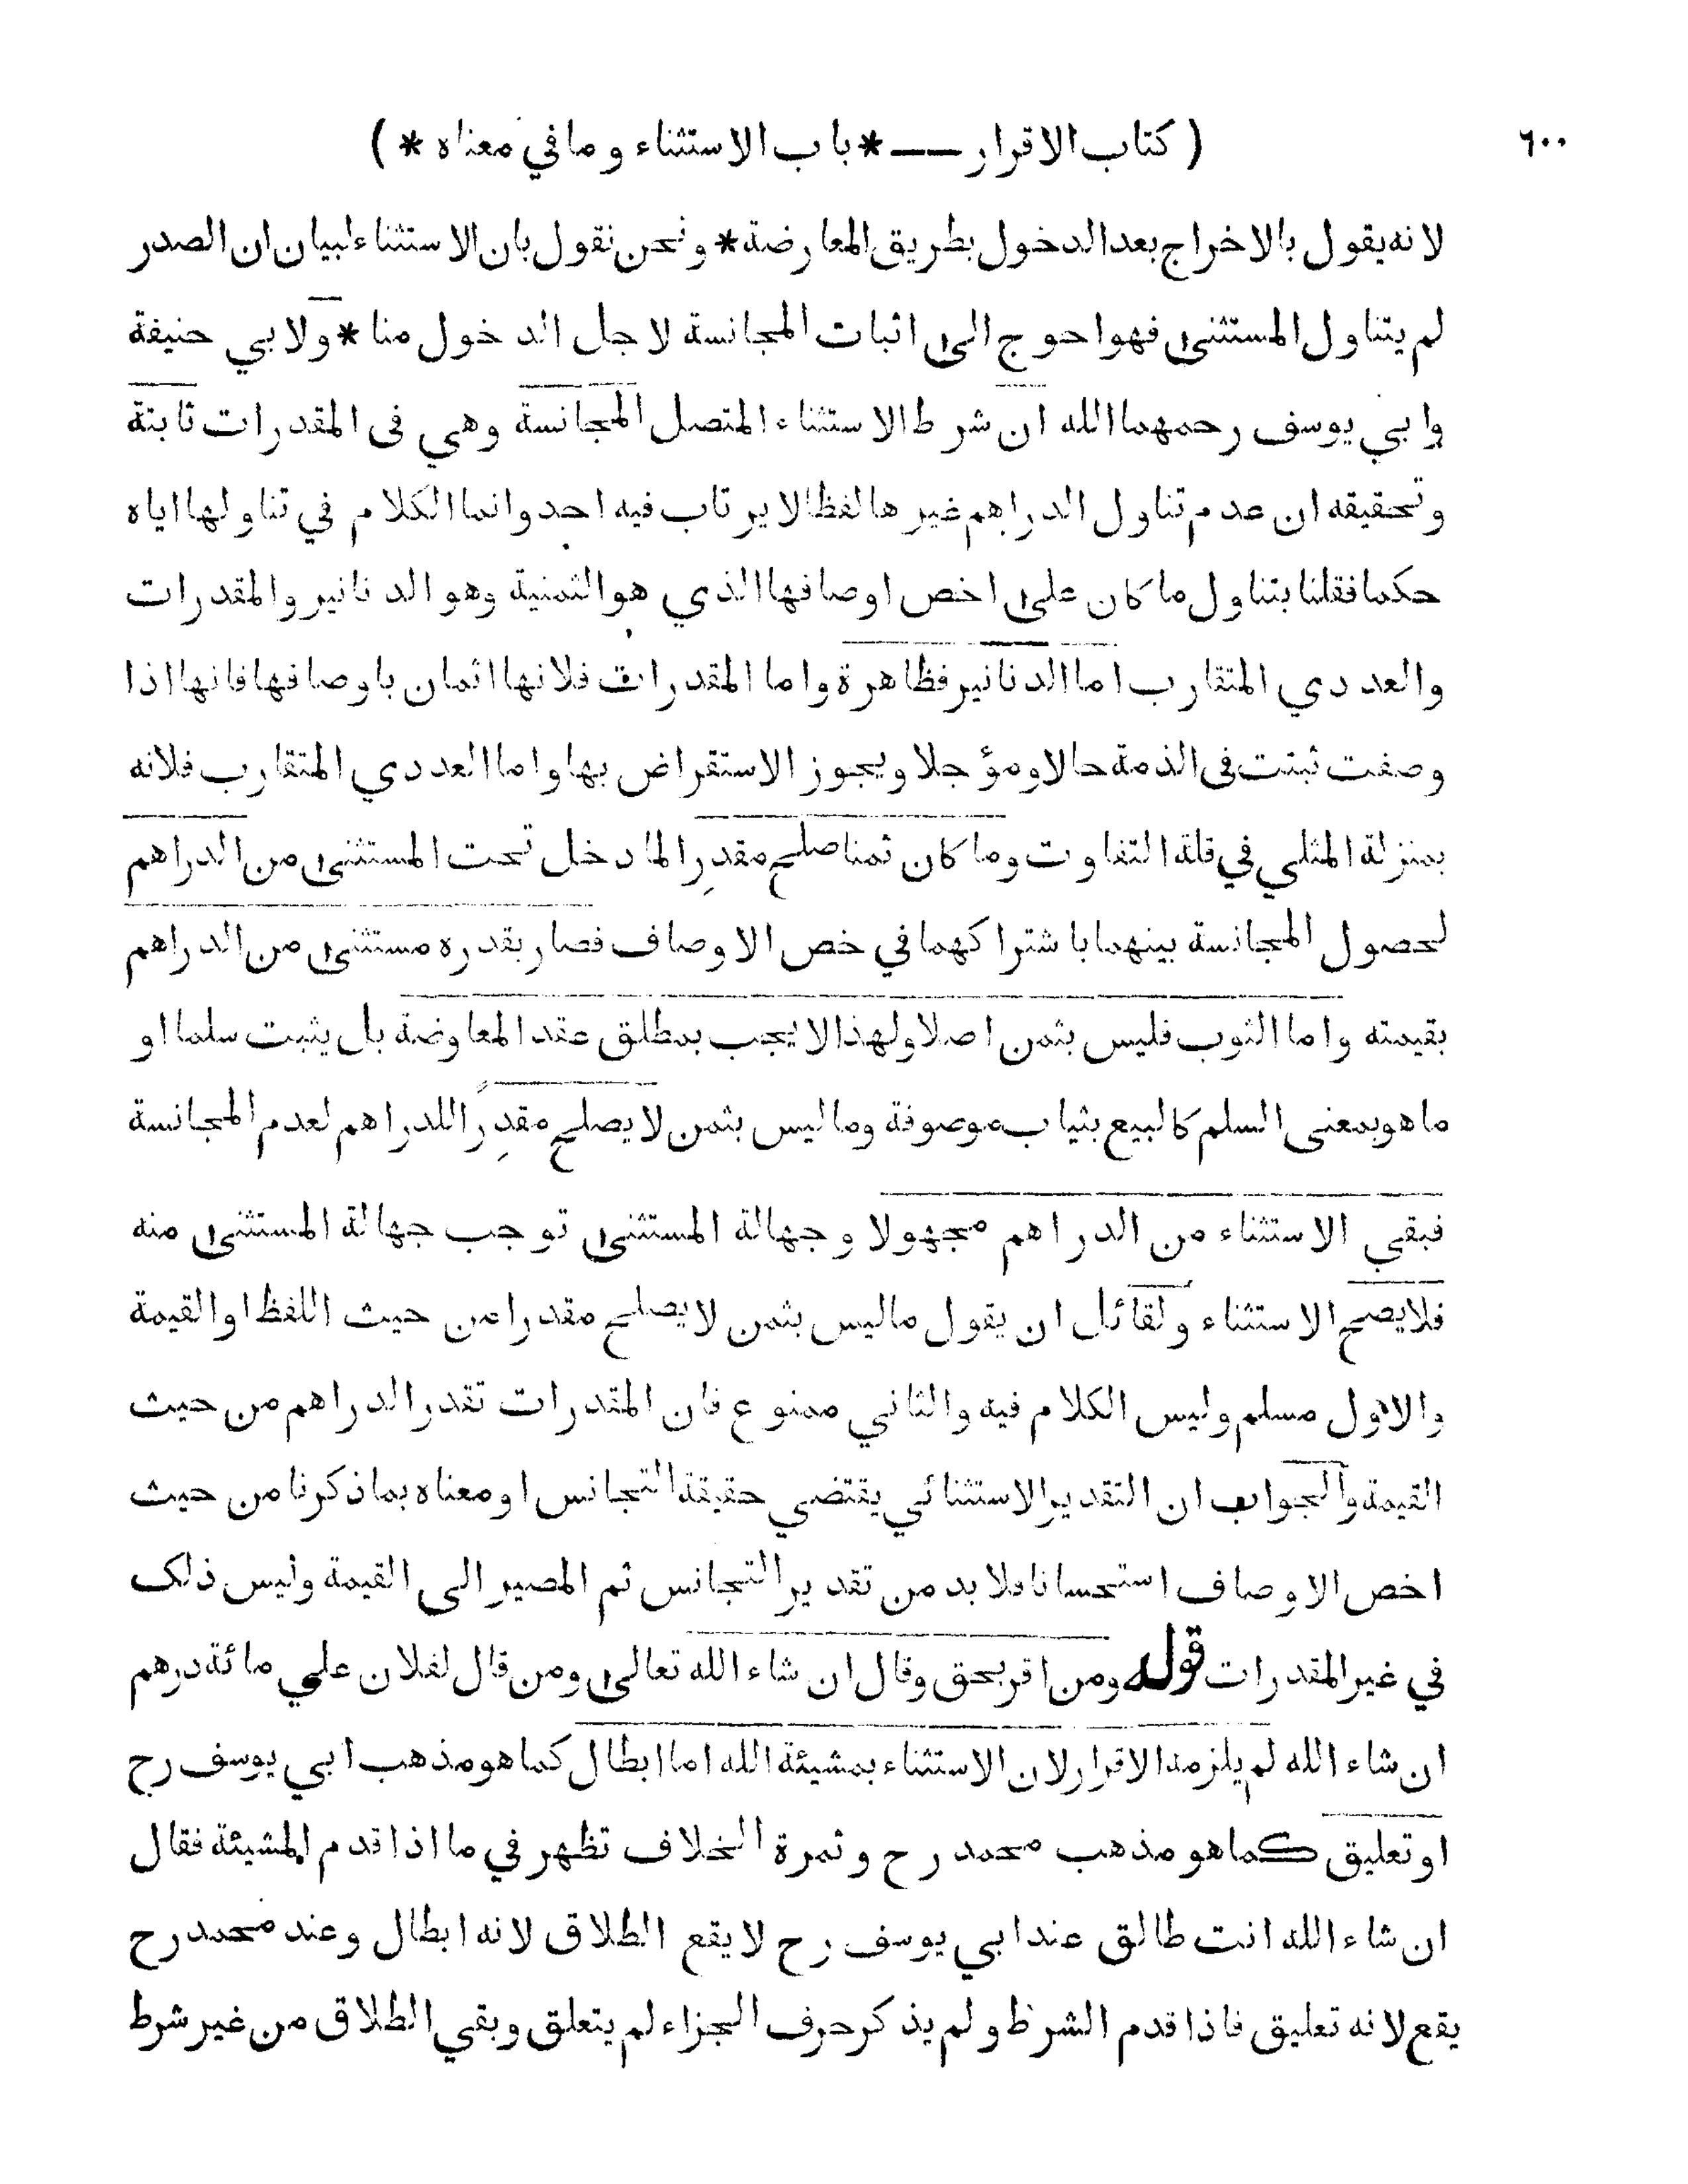 ( كتاب الاقرار — * باب الاستثناء وما في معناه * ) ٦٠٠
لانه يقول بالاخراج بعد الدخول بطريق المعارضة * ونحن نقول بان الاستثناء لبيان ان الصدر
لم يتناول المستثنى فهو احوج الى اثبات المجانسة لاجل الدخول منا * ولابي حنيفة
وابي يوسف رحمهما الله ان شرط الاستثناء المتصل المجانسة وهي في المقدرات ثابتة
وتحقيقه ان عدم تناول الدراهم غيرها لفظا لا يرتاب فيه احد وانما الكلام في تناولها اياه
حكما فقلنا بتناول ما كان على اخص اوصافها الذي هو الثمنية وهو الدنانير والمقدرات
والعددي المتقارب اما الدنانير فظاهرة واما المقدرات فلانها اثمان باوصافها فانها اذا
وصفت ثبتت في الذمة حالا ومؤجلا ويجوز الاستقراض بها واما العددي المتقارب فلانه
بمنزلة المثلي في قلة التفاوت وما كان ثمنا صلح مقدِرا لما دخل تحت المستثنى من الدراهم
لحصول المجانسة بينهما باشتراكهما في خص الاوصاف فصار بقدره مستثنى من الدراهم
بقيمته واما الثوب فليس بثمن اصلا ولهذا لا يجب بمطلق عقد المعاوضة بل يثبت سلما او
ما هو بمعنى السلم كالبيع بثياب موصوفة وما ليس بثمن لا يصلح مقدِرًا للدراهم لعدم المجانسة
فبقي الاستثناء من الدراهم مجهولا وجهالة المستثنى توجب جهالة المستثنى منه
فلا يصح الاستثناء ولقائل ان يقول ما ليس بثمن لا يصلح مقدرا من حيث اللفظ او القيمة
والاول مسلم وليس الكلام فيه والثاني ممنوع فان المقدرات تقدر الدراهم من حيث
القيمة والجواب ان التقدير الاستثنائي يقتضي حقيقة التجانس او معناه بما ذكرنا من حيث
اخص الاوصاف استحسانا فلا بد من تقدير التجانس ثم المصير الى القيمة وليس ذلك
في غير المقدرات قوله ومن اقر بحق وقال ان شاء الله تعالى ومن قال لفلان علي مائة درهم
ان شاء الله لم يلزمه الاقرار لان الاستثناء بمشيئة الله اما ابطال كما هو مذهب ابي يوسف رح
او تعليق كما هو مذهب محمد رح وثمرة الخلاف تظهر في ما اذا قدم المشيئة فقال
ان شاء الله انت طالق عند ابي يوسف رح لا يقع الطلاق لانه ابطال وعند محمد رح
يقع لانه تعليق فاذا قدم الشرط ولم يذكر حرف الجزاء لم يتعلق وبقي الطلاق من غير شرط